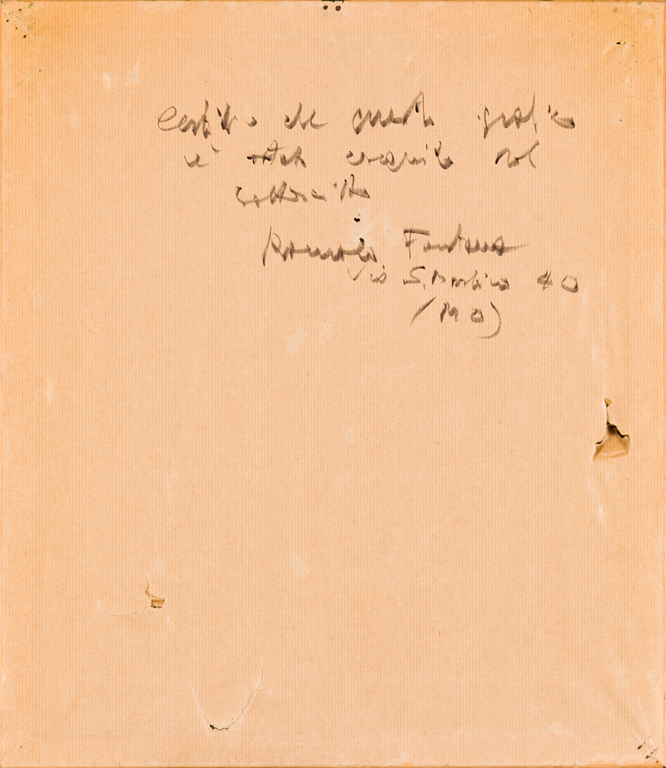 Certifico che questa grafica
è stata eseguita dal
sottoscritto
Romolo Fontana
Via S. Martino 40
(MO)